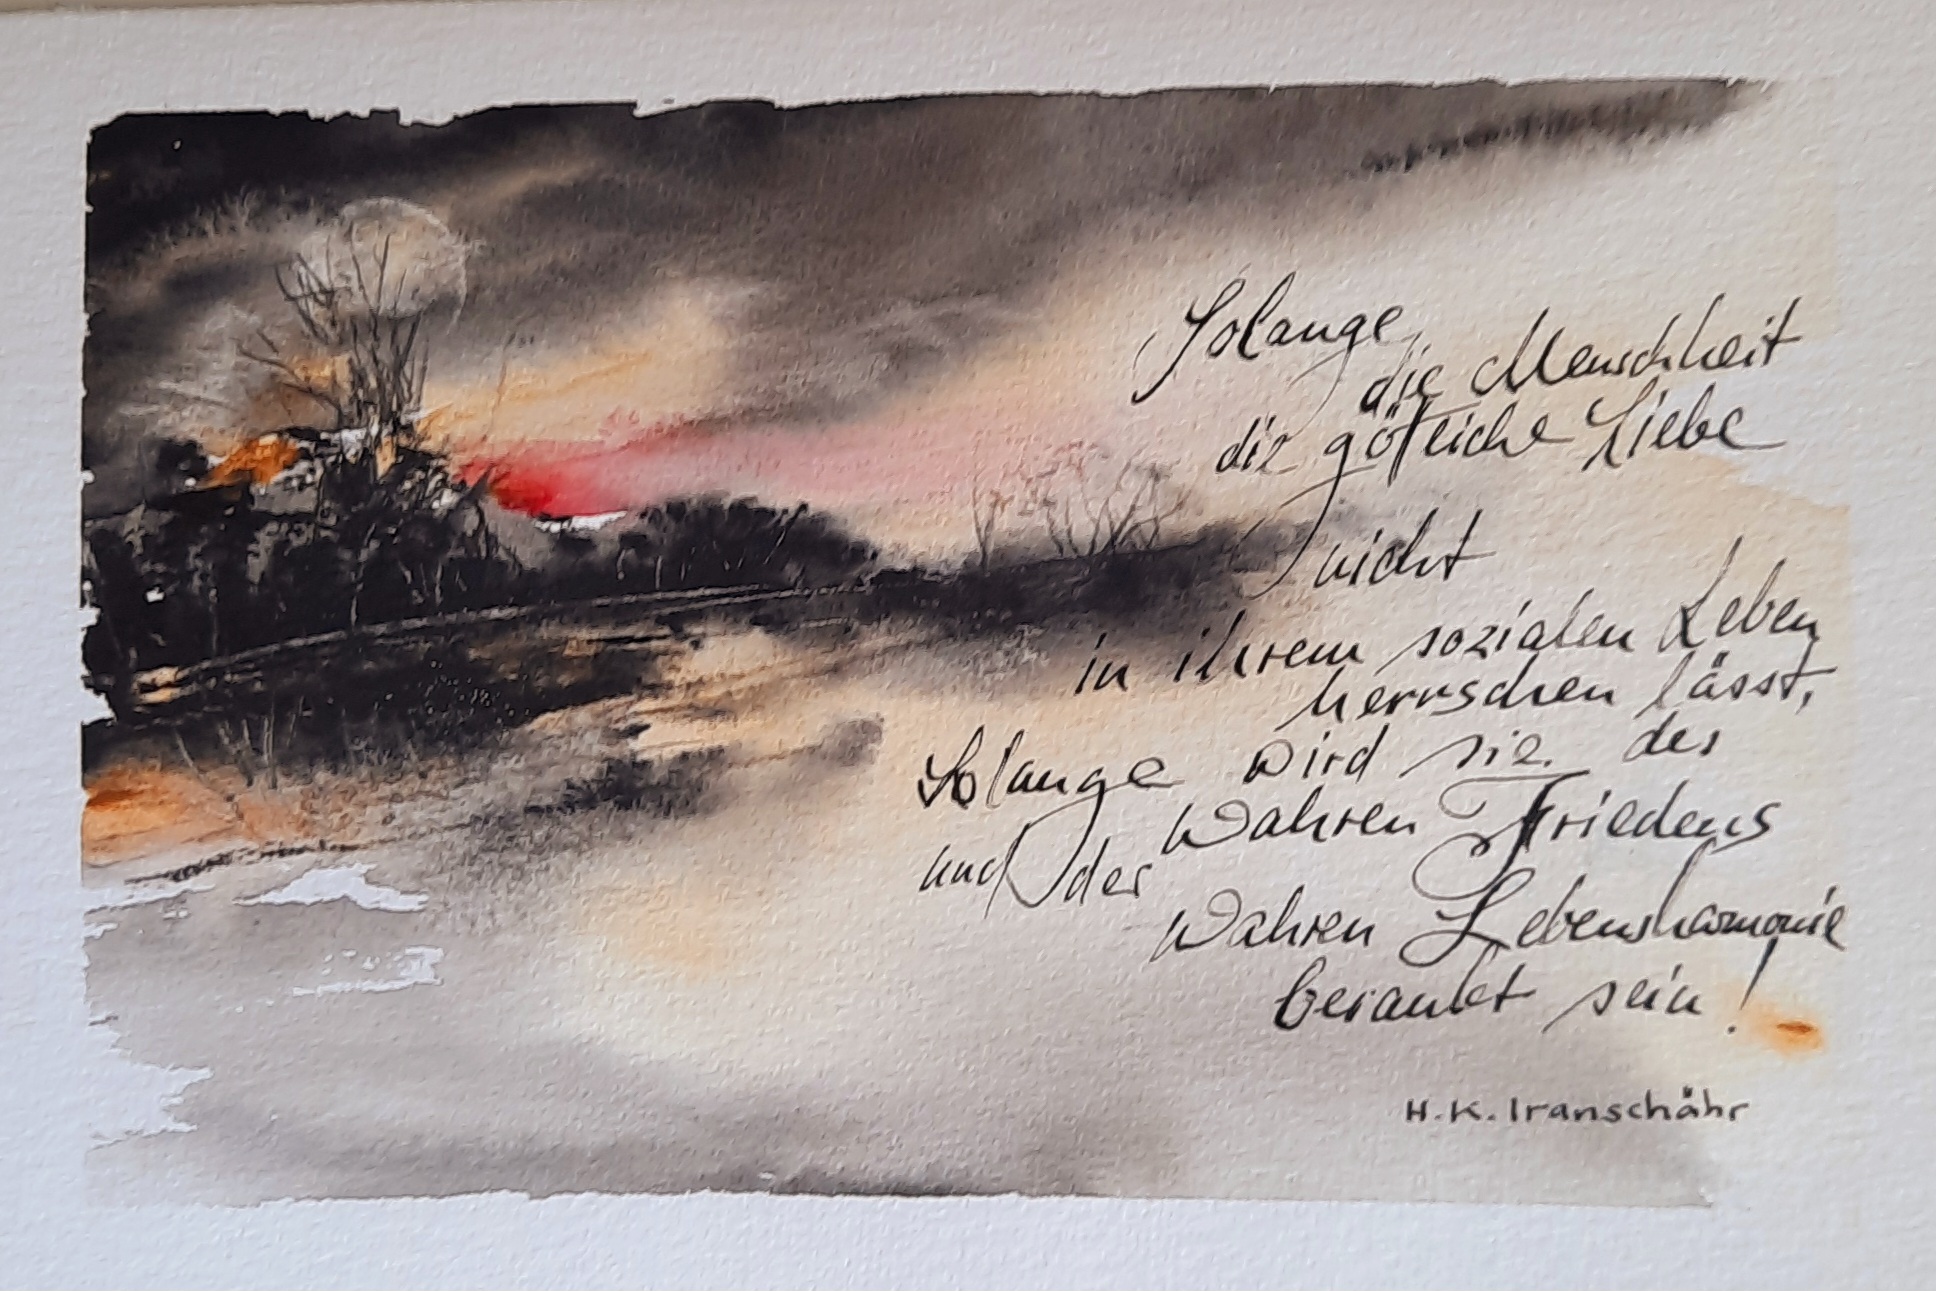 Solange
die Menschheit
die götliche Liebe
nicht
in ihrem sozialen Leben
herrschen lässt,
Solange wird sie des
wahren Friedens
und der
wahren Lebensharmonie
beraubt sein!
H.K. Iranschähr